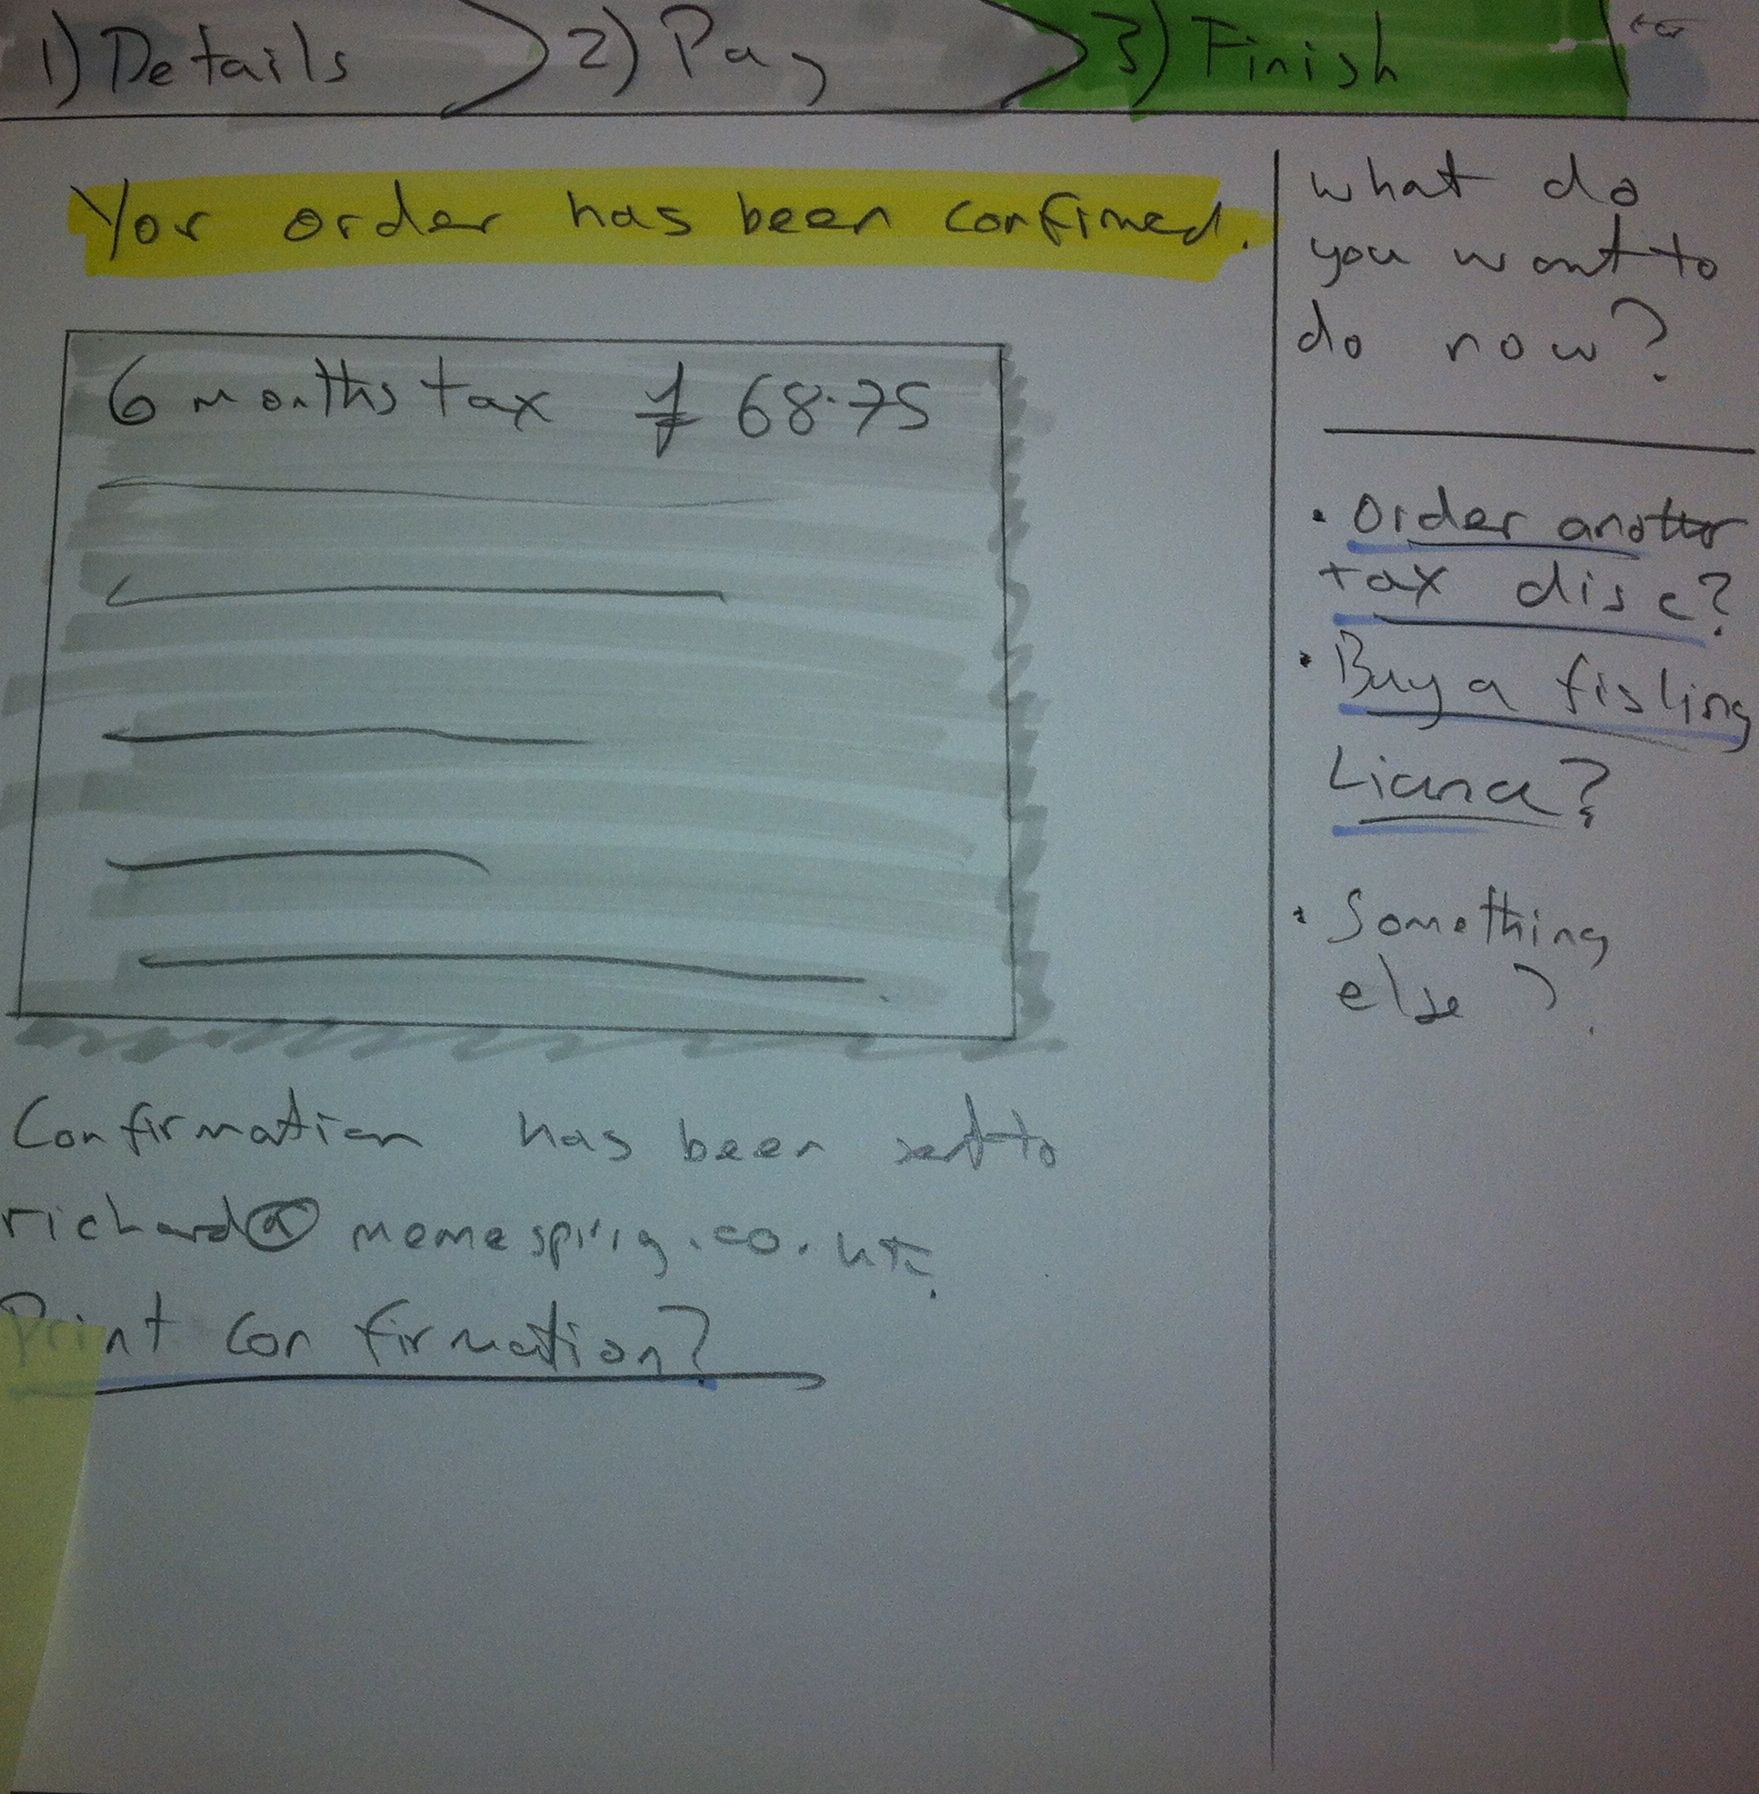 1) Details 2) Pay 3) Finish
Yor order has been confimed.
6 months tax £ 68.75
Confirmation has been sent to
richard@memespring.co.uk.
Print confirmation?
what do
you want to
do now?
• Order another
tax disc?
• Buy a fishing
Licence?
• Something
else?